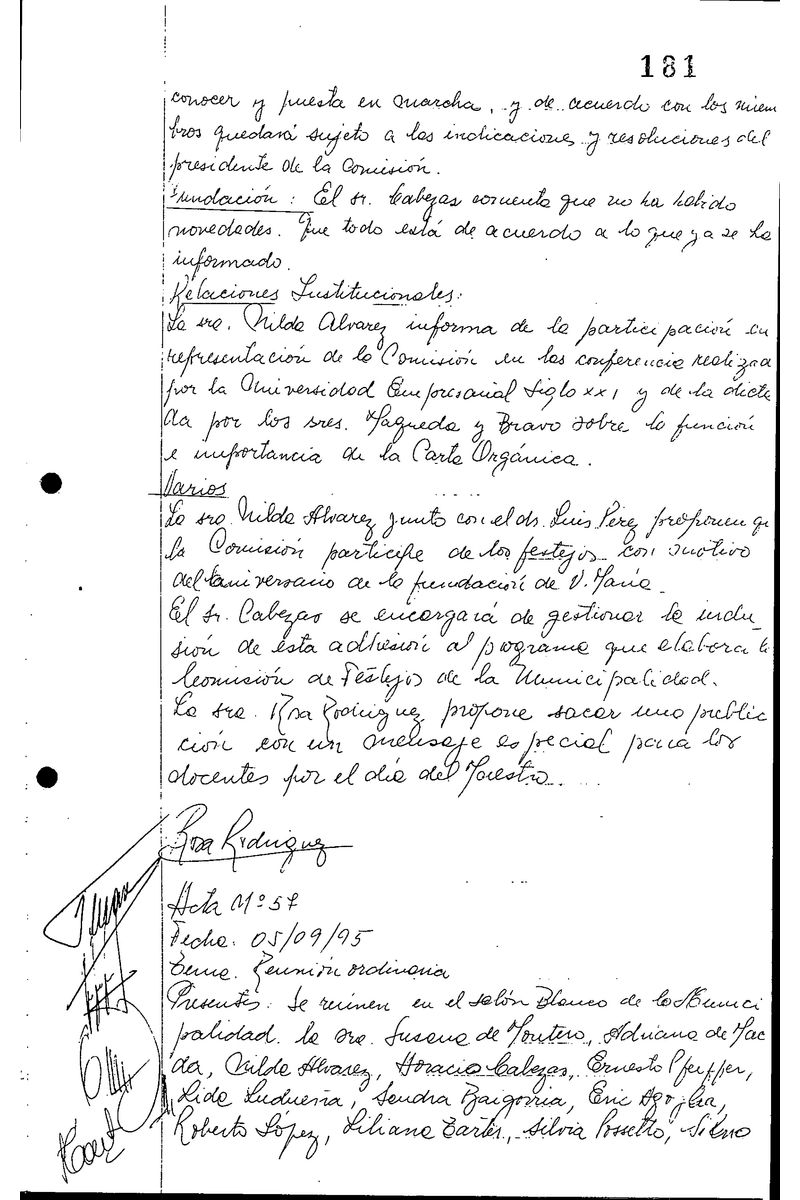 181
conocer y puesta en marcha, y de acuerdo con los miem
bros quedará sujeto a las indicaciones y resoluciones del
presidente de la Comisión.
Fundación: El sr. Cabezas comenta que no ha habido
novedades. Que todo está de acuerdo a lo que ya se ha
informado.
Relaciones Institucionales:
La sra. Nilda Alvarez informa de la participación en
representación de la Comisión en las conferencia realizada
por la Universidad Empresarial Siglo XXI y de la dicta
da por los sres. Maqueda y Bravo sobre la función
e importancia de la Carta Orgánica.
Varios
La sra. Nilda Alvarez junto con el dr. Luis Pérez proponen que
la Comisión participe de los festejos con motivo
del aniversario de la fundación de V. María.
El sr. Cabezas se encargará de gestionar la inclu
sión de esta adhesión al programa que elabora la
Comisión de Festejos de la Municipalidad.
La sra. Rosa Rodriguez propone sacar una public
ción con un mensaje especial para los
docentes por el día del Maestro.
Rosa Rodriguez
Acta Nº 57
Fecha: 05/09/95
Tema: Reunión ordinaria
Presentes: Se reúnen en el salón Blanco de la Munici
palidad la sra. Susana de Montero, Adriana de Mac
da, Nilda Alvarez, Horacio Cabezas, Ernesto Pfeiffer,
Lida Ludueña, Sandra Baigorria, Eric Agoglia,
Roberto López, Liliana Carter, Silvia Possetto, Silvio